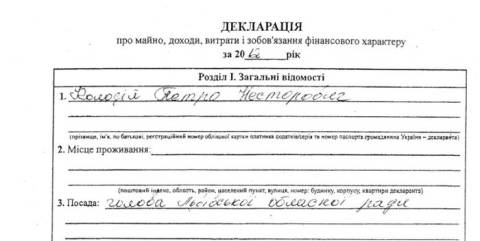 ДЕКЛАРАЦІЯ
про майно, доходи, витрати і зобов'язання фінансового характеру
за 2012 рік
Розділ I. Загальні відомості
1. Колодій Петро Несторович
(прізвище, ім'я, по батькові, реєстраційний номер облікової картки платника податків/серія та номер паспорта громадянина України – декларанта)
2. Місце проживання:
(поштовий індекс, область, район, населений пункт, вулиця, номер: будинку, корпусу, квартири декларанта)
3. Посада: голова Львівської обласної ради